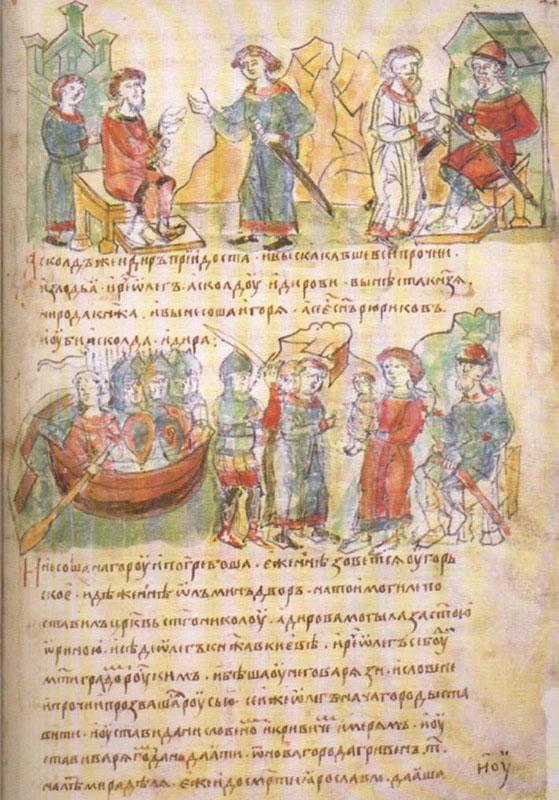 Асколдъ же и диръ приидоста · и выскакавше вси прочии ·
из лодьѧ · и рⷱ҇е ѡлегъ асколдоу и дирови · вы нѣста кн҃ѧзѧ ·
ни рода кнѧжа · и вынесоша игорѧ · а се е с҃нъ рюриковъ ·
и оубиша асколда и дира :
И несоша на гороу и погребоша · еже нн҃ѣ зоветсѧ оугорь
ское · идѣже нн҃ѣ ѡлъминъ дворъ · на тои могиле по
ставилъ цр҃квь ст҃го николоу · а дирова могыла за ст҃ою
ѡриною · и сѣде ѡлегъ кнѧжа в киевѣ · и рⷱ҇е ѡлегъ се боуⷣ
мт҃и градоⷨ роускимъ · и бѣша оу него варѧзи · и словене
и прочии прозвашаⷭ роусью · сеи же ѡлегъ нача городы ста
вити · и оустави дани словеноⷨ и кривичеⷨ и мерѧмъ · и оу
стави варѧгоⷨ дань даѧти · ѿ новагорода гривенъ · т҃ ·
на лѣⷮ мира дѣлѧ · еже и до смр҃ти ѧрославлѧ · даѧша